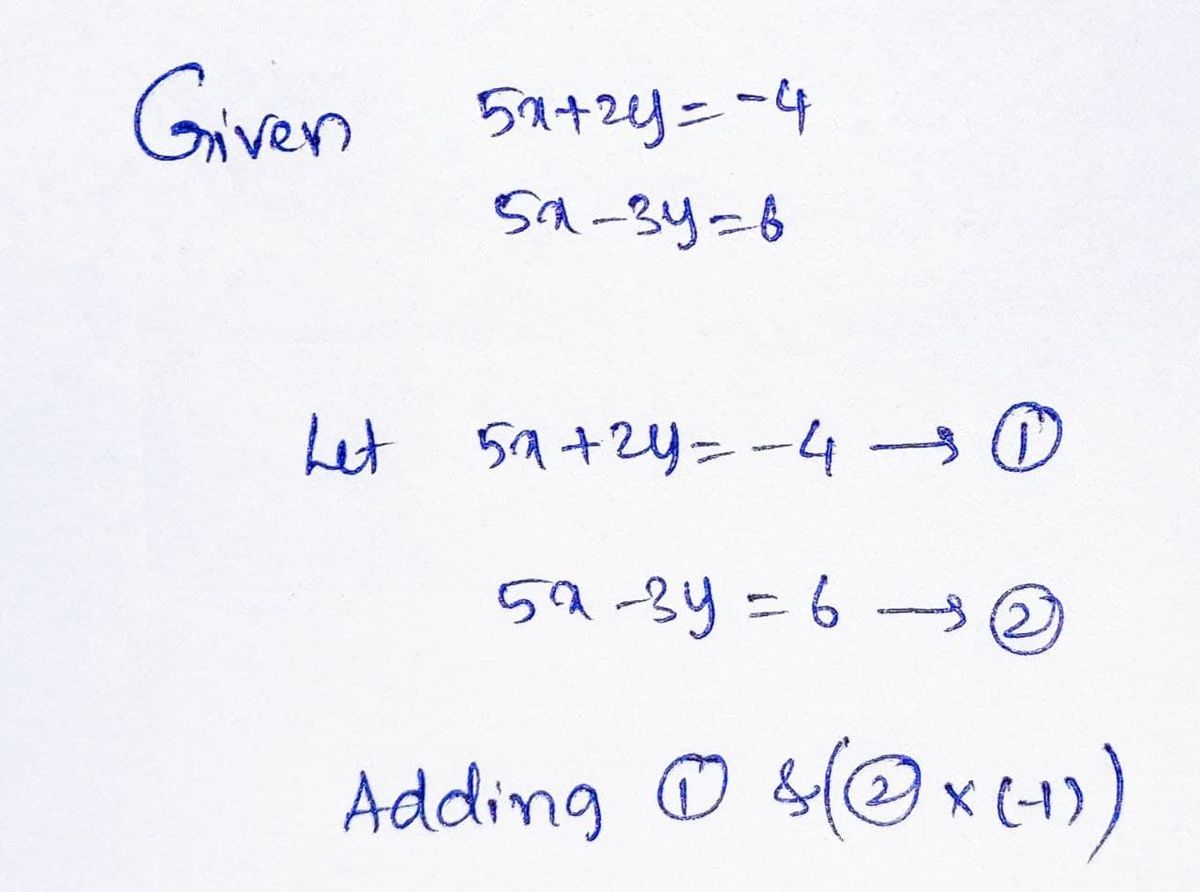 Given 5x+2y=-4
5x-3y=6
Let 5x+2y=-4 → ①
5x-3y=6 → ②
Adding ① &(②x(-1))